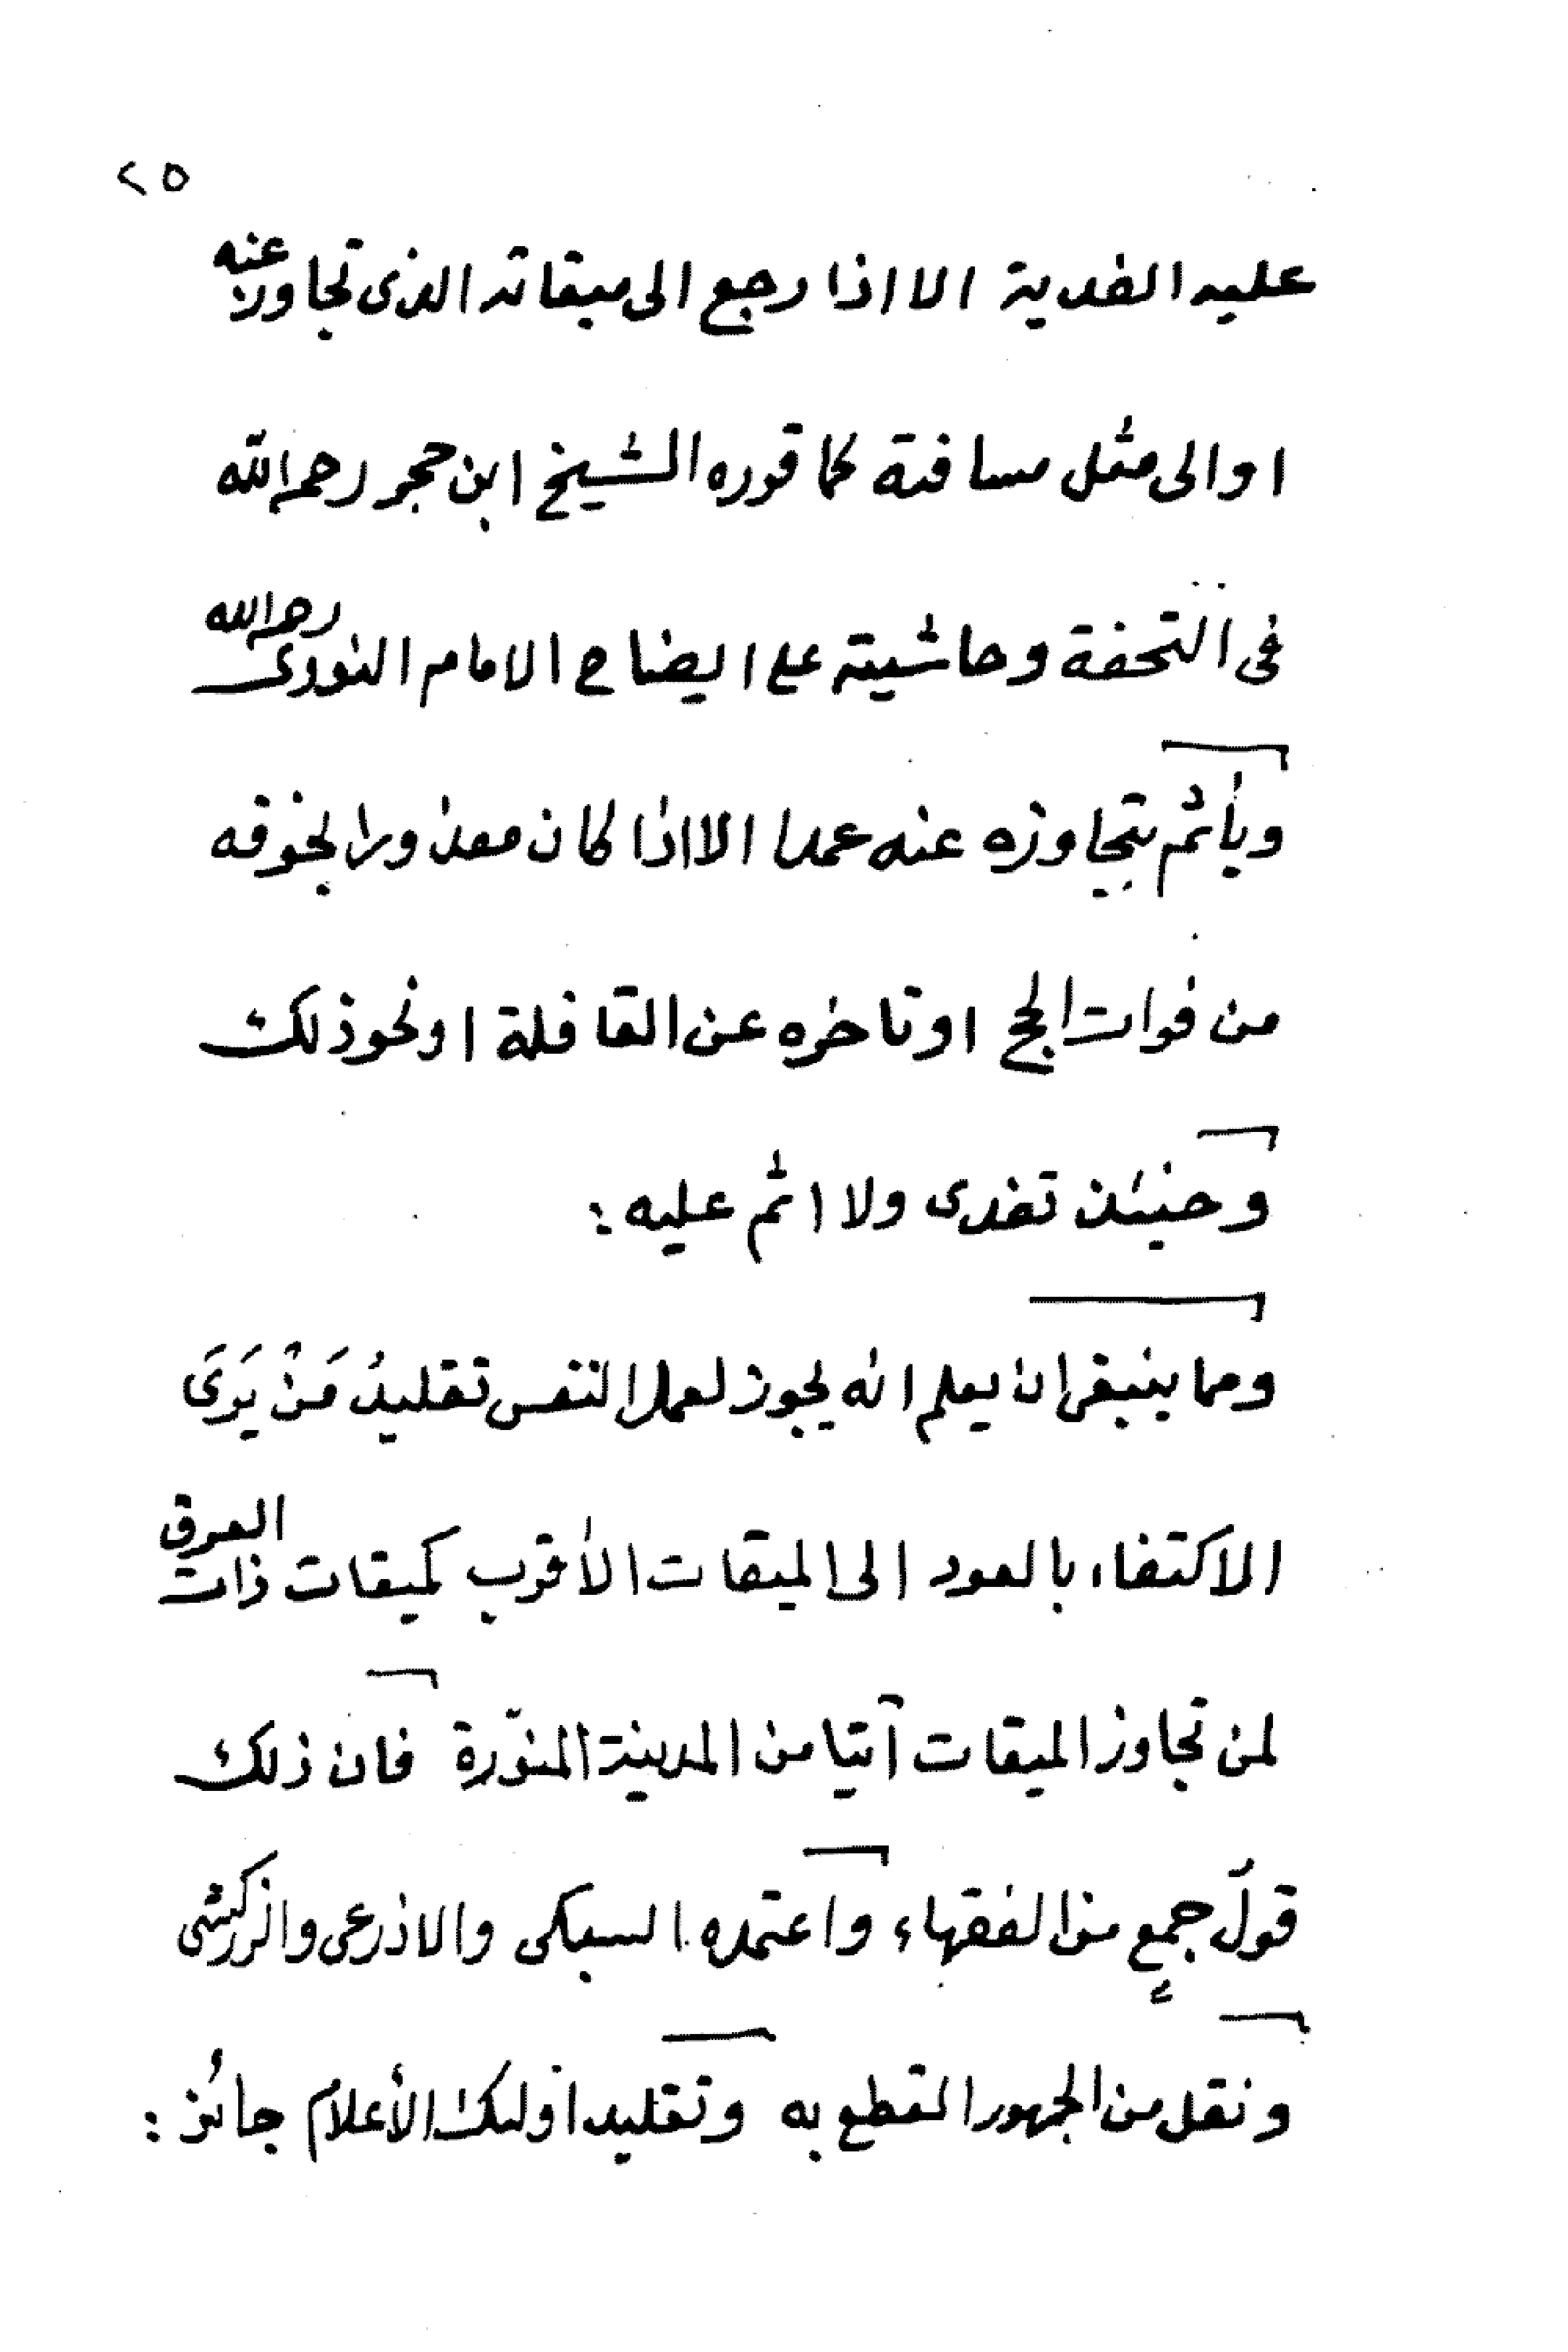 ٢٥
عليه الفدية الا اذا رجع الى ميقاته الذى تجاوز عنه
او الى مثل مسافة كما قرره الشيخ ابن حجر رحمه الله
فى التحفة وحاشيته على ايضاح الامام النووى رحمه الله
ويأثم بتجاوزه عنه عمدا الا اذا كان معذورا لخوفه
من فوات الحج او تاخره عن القافلة او نحو ذلك
وحينئذ تفدى ولا اثم عليه :
ومما ينبغى ان يعلم انه يجوز لعمل النفس تقليدُ مَنْ يَرَى
الاكتفاء بالعود الى الميقات الأقرب كميقات ذات العرق
لمن تجاوز الميقات آتيا من المدينة المنوّرة فان ذلك
قولُ جمعٍ من الفقهاء واعتمده السبكى والاذرعى والزركشى
ونقل من الجمهور القطع به وتقليد اولئك الأعلام جائز :